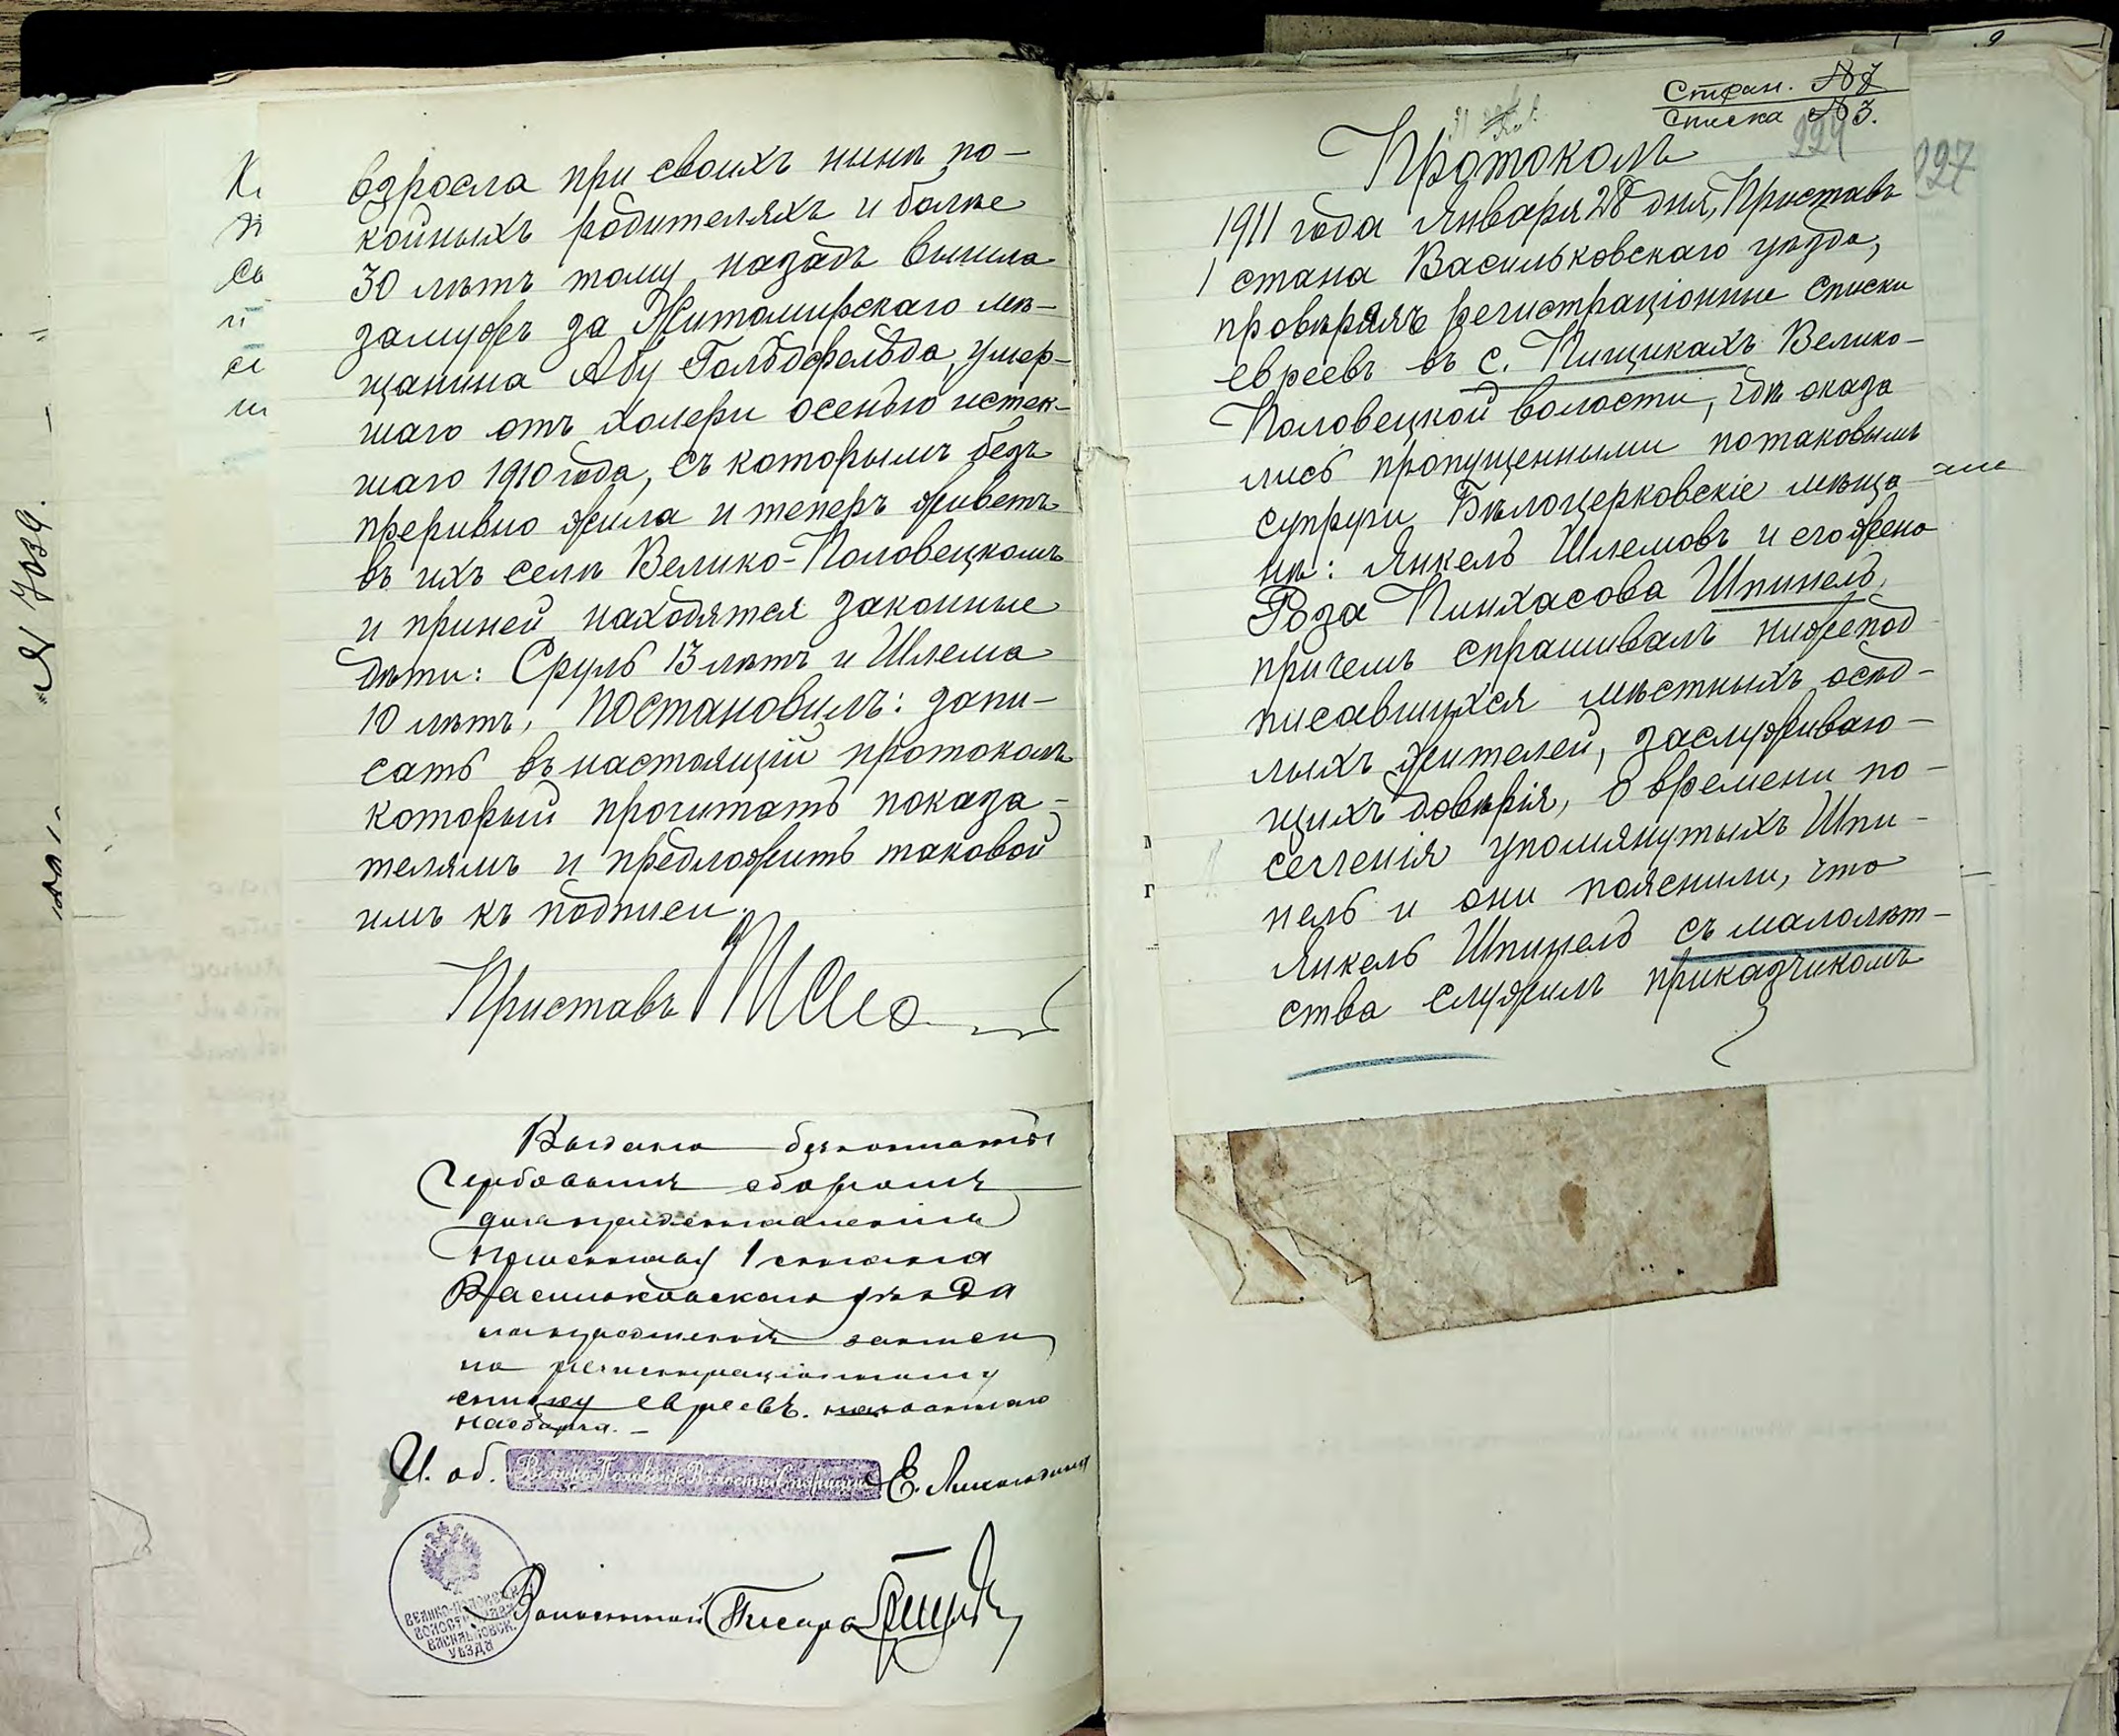 взросла при своихъ нынѣ по-
койныхъ родителяхъ и болѣе
30 лѣтъ тому назадъ вышла
замужъ за Житомирскаго мѣ-
щанина Абу Гольдфельда, умер-
шаго отъ холеры осенью истек-
шаго 1910 года, съ которымъ без
преривно жила и теперъ живетъ
въ ихъ селѣ Велико-Половецкомъ
и приней находятся законные
дѣти: Сруль 13 лѣтъ и Шлема
10 лѣтъ, постановилъ: запи-
сать въ настоящій протоколъ
который прочитать показа-
телямъ и предложить таковой
имъ къ подписи.
Приставъ
Выдана безплатно
Гербовымъ сборомъ
для представленія
Приставу 1 стана
Васильковскаго уѣзда
на предметъ записи
по регистраціонному
списку евреевъ.
наоборотѣ. -
И. об. Велико-Половецк. Волостн. Старшины Е.
ВЕЛИКО-ПОЛОВЕЦК.
ВОЛОСТН. ПРАВЛ.
ВАСИЛЬКОВСК.
УѢЗДА
Волостной Писарь
№ 7039.
Стран. № 7
Списка № 3.
224
227
Протоколъ
1911 года Января 28 дня, Приставъ
1 стана Васильковскаго уѣзда,
провѣряя регистраціонние списки
евреевъ въ с. Пищикахъ Велико-
Половецкой волости, гдѣ оказа
лись пропущенными потаковымъ
супруги Бѣлоцерковскіе мѣща-
нѣ: Янкель Шлемовъ и его жена
Роза Пинхасова Шпинель,
причемъ спрашивалъ нижепод
писавшихся мѣстныхъ осѣд-
лыхъ жителей, заслуживаю-
щихъ довѣрія, о времени по-
селенія упомянутыхъ Шпи-
нель и они пояснили, что
Янкель Шпинель съ малолѣт-
ства служилъ приказчикомъ